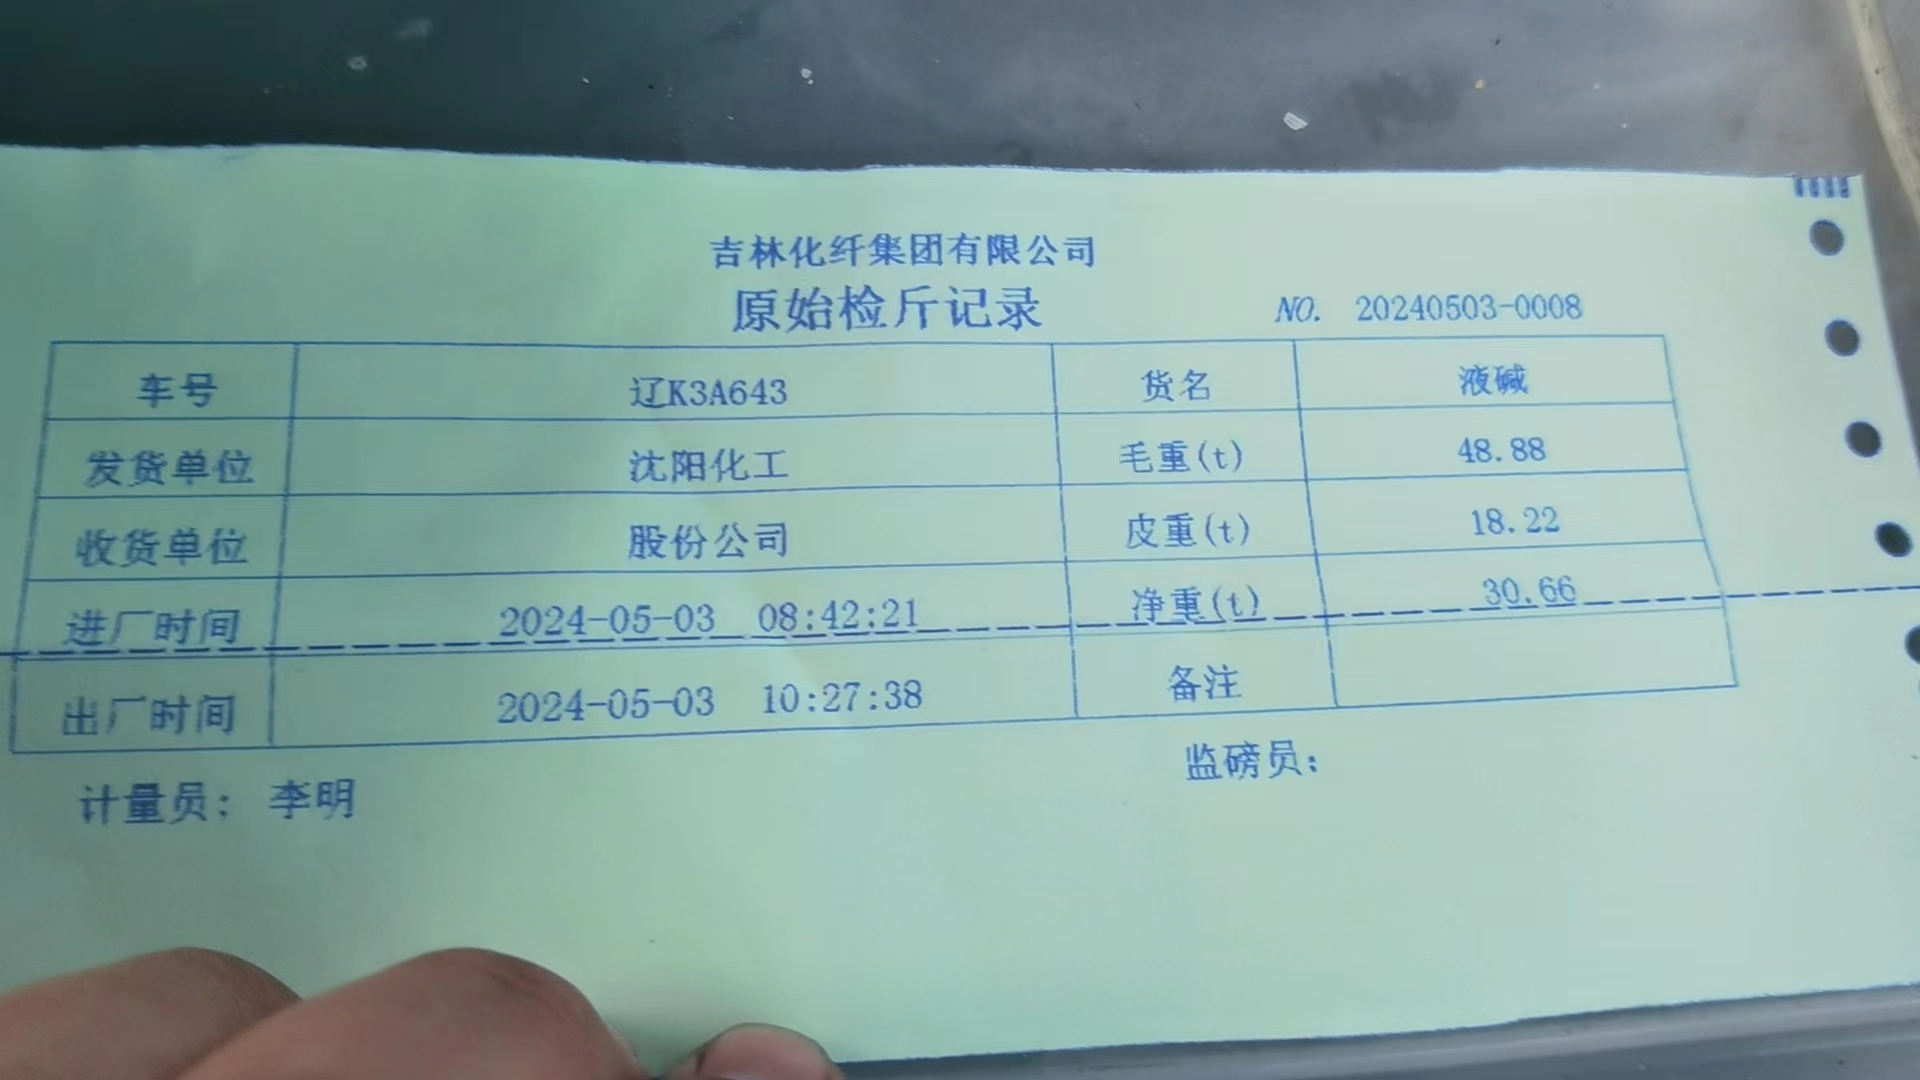 吉林化纤集团有限公司
原始检斤记录 NO. 20240503-0008
车号 辽K3A643 货名 液碱
发货单位 沈阳化工 毛重(t) 48.88
收货单位 股份公司 皮重(t) 18.22
进厂时间 2024-05-03 08:42:21 净重(t) 30.66
出厂时间 2024-05-03 10:27:38 备注
计量员: 李明 监磅员: